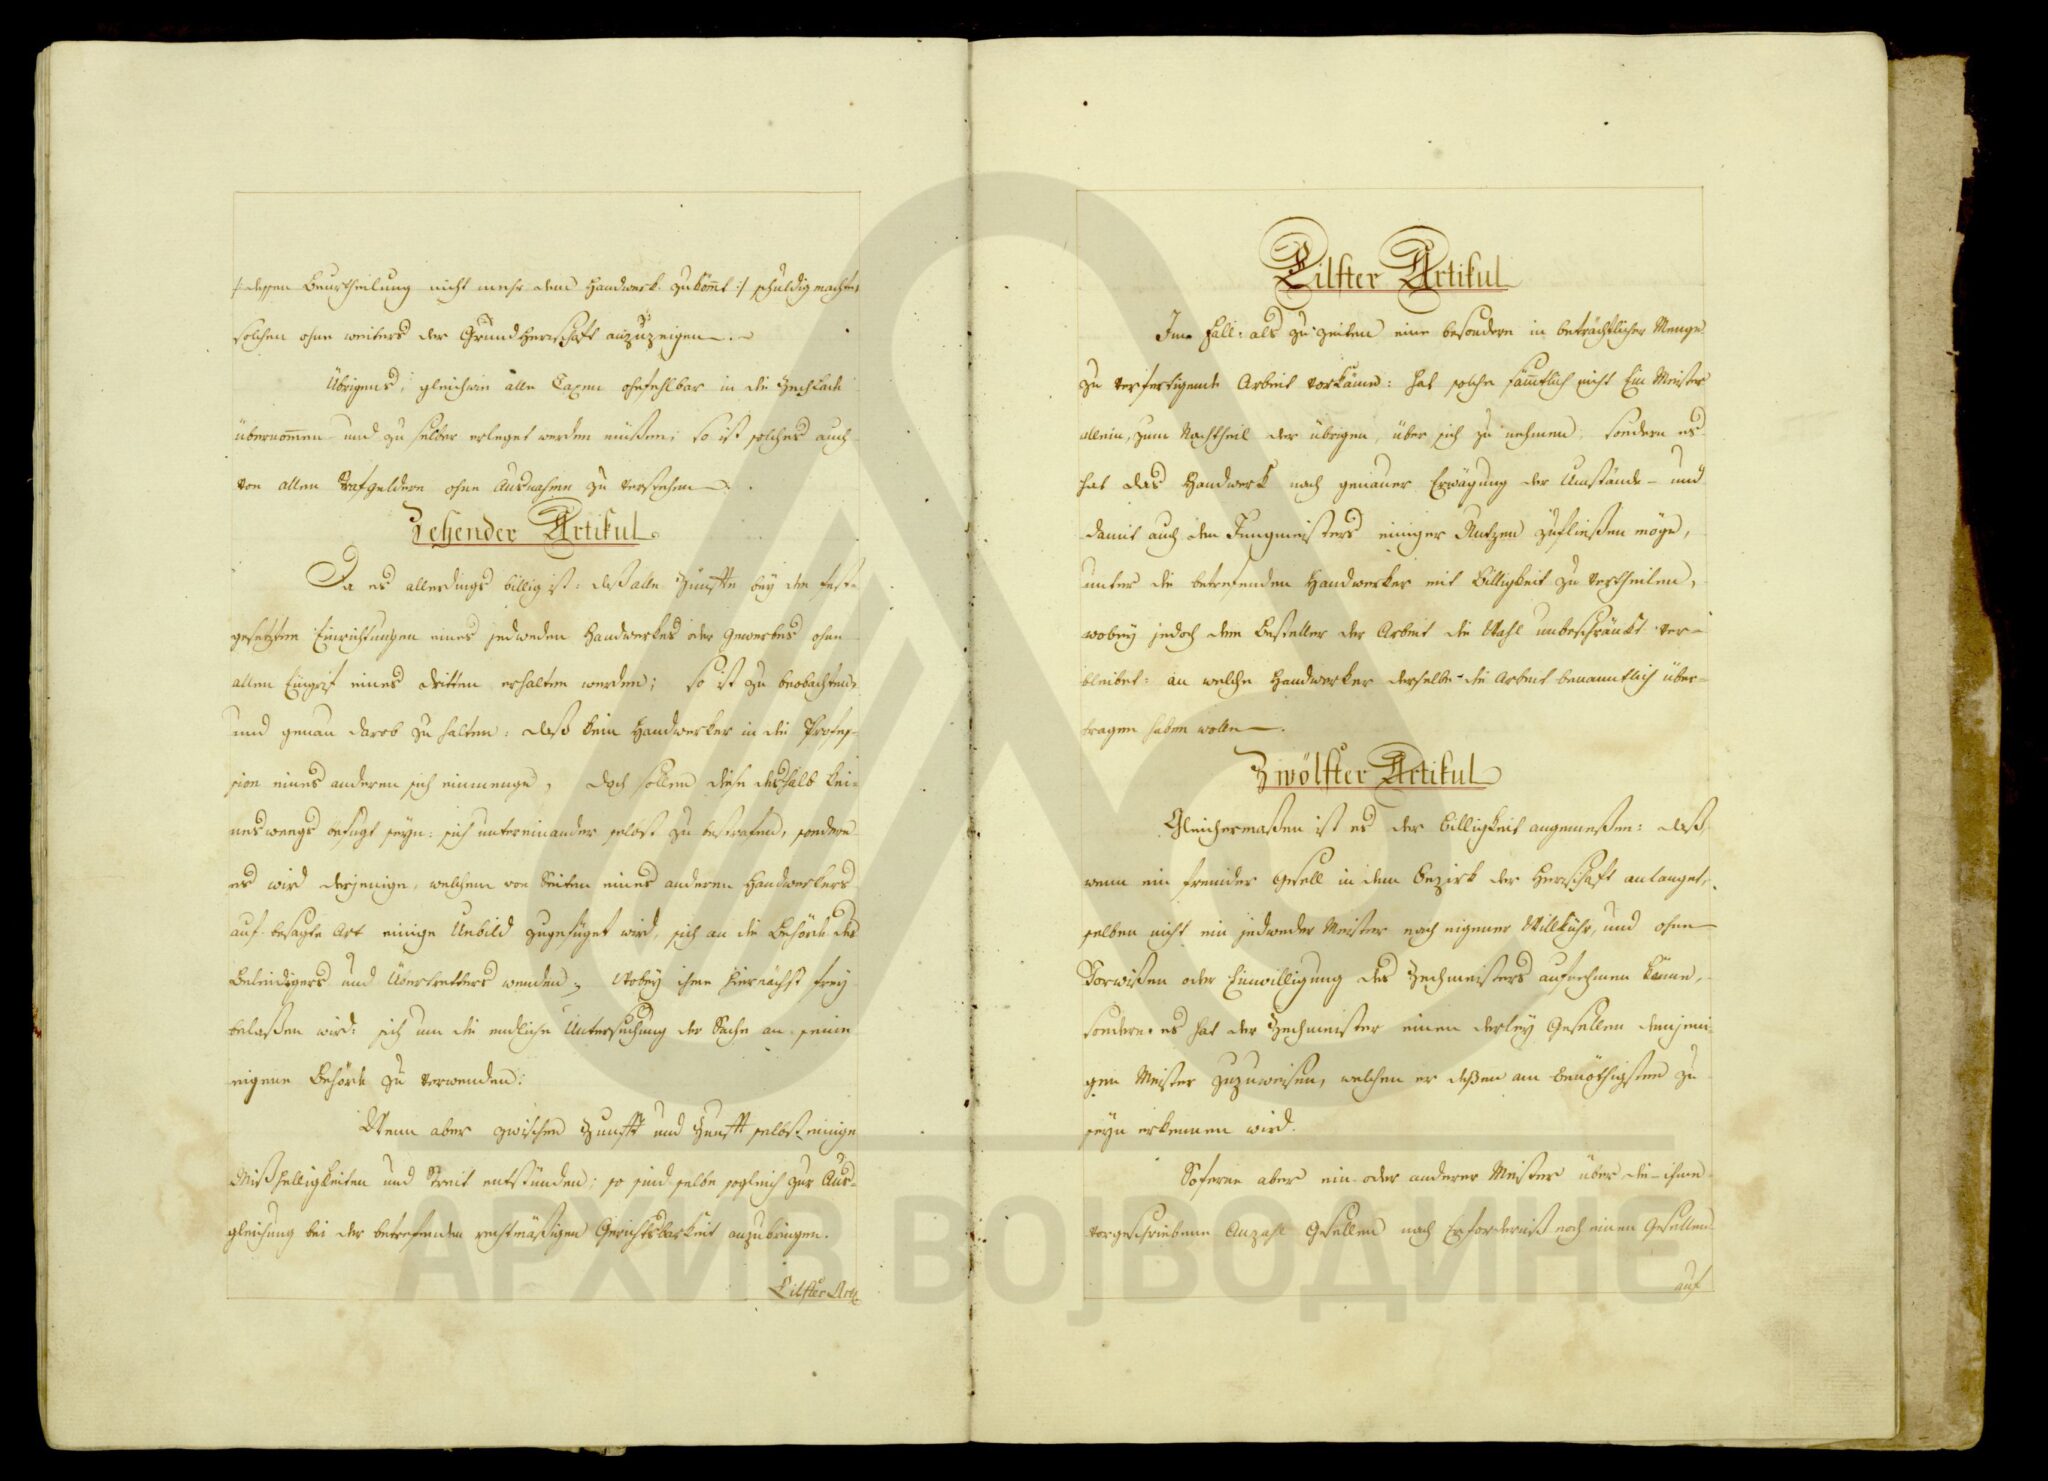 /: dessen Beurtheilung nicht mehr dem Handwerk zukömt :/ schuldig machet
solchen ohne weiters der Grundherrschaft anzuzeigen.
Übrigens, gleichwie alle Taxen ohnfehlbar in die Zechlade
übernommen und zu selber erleget werden müßen; so ist solches auch
von allen Strafgeldern ohne Ausnahm zu verstehen.
Zehender Artikul.
Da es allerdings billig ist: daß alle Zünfte bey den fest-
gesetzten Einrichtungen eines jedweden Handwerkes oder Gewerbes ohne
allen Eingrif eines dritten erhalten werden; so ist zu beobachten
und genau darob zu halten: daß kein Handwerker in die Profes-
sion eines anderen sich einmenge, doch sollen diese deshalb kei-
neswegs befugt seyn: sich untereinander selbst zu bestrafen, sondern
es wird derjenige, welchem von Seiten eines anderen Handwerkers
auf besagte Art einige Unbild zugefüget wird, sich an die Behörde des
Beleidigers und Übertretters wenden, Wobey ihme hiernächst frey
belaßen wird: sich um die endliche Untersuchung der Sache an seine
eigene Behörde zu verwenden:
Wenn aber zwischen Zunfft und Zunfft selbst einige
Mißhelligkeiten und Streit entstünden; so sind selbe sogleich zur Aus-
gleichung bei der betrefenden rechtmäßigen Gerichtsbarkeit anzubringen.
Eilfter Art
Eilfter Artikul
Im Fall: als zu zeiten eine besondere in beträchtlicher Menge
zu verfertigende Arbeit vorkäme: hat solche sämtlich nicht Ein Meister
allein, zum Nachtheil der übrigen, über sich zu nehmen, sondern es
hat das Handwerk nach genauer Erwägung der Umstände und
damit auch den Jungmeisters einiger Nutzen zufließen möge,
unter die betrefenden Handwerker mit Billigkeit zu vertheilen,
wobey jedoch dem Besteller der Arbeit die Wahl unbeschränkt ver-
bleibet: an welche Handwerker derselbe die Arbeit benanntlich über-
tragen haben wolle.
Zwölfter Artikul
Gleichermaßen ist es der Billigkeit angemeßen: daß
wenn ein fremder Gesell in dem Bezirk der Herrschaft anlanget,
selben nicht ein jedweder Meister nach eigener Willkühr, und ohne
Vorwißen oder Einwilligung des Zechmeisters aufnehmen könne,
sondern es hat der Zechmeister einen derley Gesellen demjeni-
gen Meister zuzuweisen, welchen er deßen am benöthigsten zu
seyn erkennen wird.
Soferne aber ein oder anderer Meister über die ihme
vorgeschriebene Anzahl Gesellen nach Erforderniß noch einen Gesellen
auf
АРХИВ ВОЈВОДИНЕ